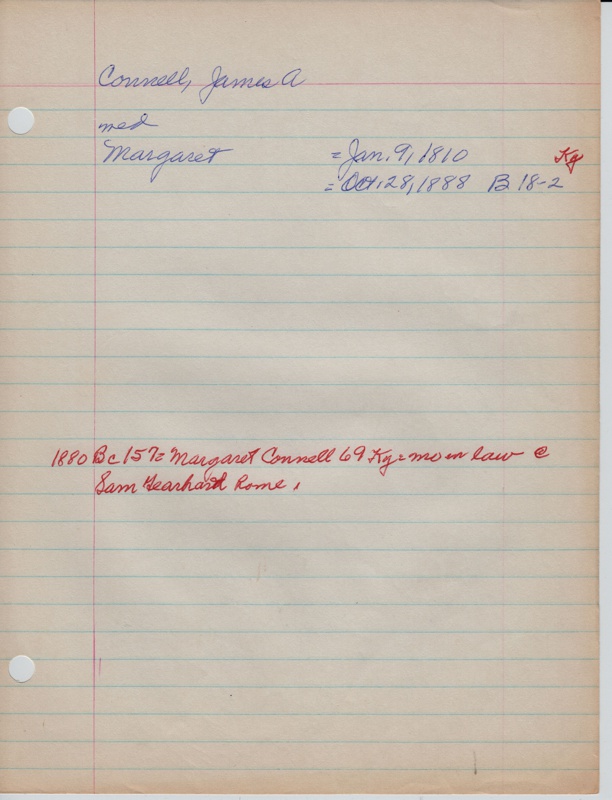 Connell, James A
med
Margaret = Jan. 9, 1810 Kg
= Oct. 28, 1888 B 18-2
1880 Bc 157= Margaret Connell 69 Kg = mo in law @
Sam Gearhard Rome.